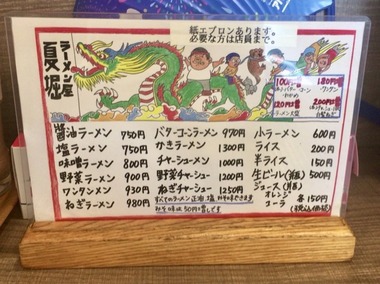 紙エプロンあります。
必要な方は店員まで。
ラーメン屋
夏堀
100円増
バター・コーン
180円増
ワンタン
120円増
ラーメン大盛
200円増
醤油ラーメン 750円
塩ラーメン 750円
味噌ラーメン 800円
野菜ラーメン 900円
ワンタンメン 930円
ねぎラーメン 980円
バターコーンラーメン 970円
かきラーメン 1300円
チャーシューメン 1000円
野菜チャーシュー 1200円
ねぎチャーシュー 1250円
すべてのラーメン 正油 塩 みそ味できます
みそ味は50円増しです。
小ラーメン 600円
ライス 200円
半ライス 150円
生ビール 500円
ジュース
オレンジ
コーラ
各150円
(税込価格)